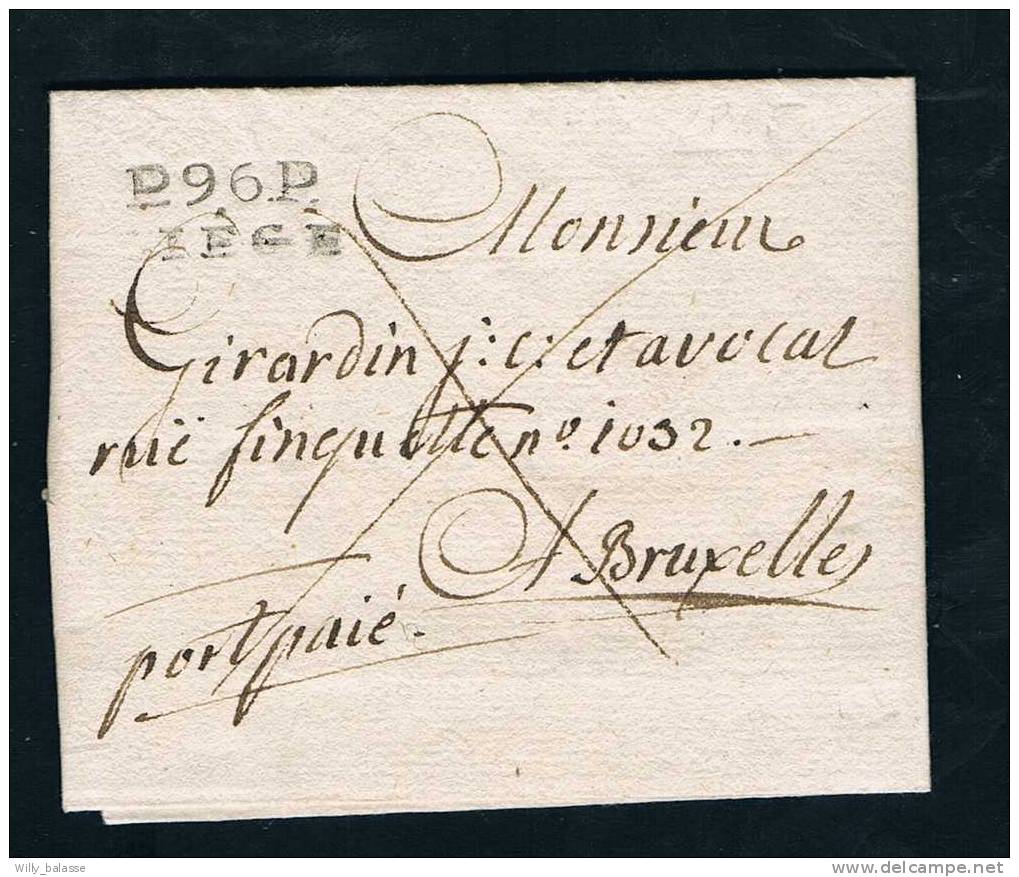 P.96.P.
IEGE
Monsieur
Girardin j: c: et avocat
ruë finquette no. 1032. —
A Bruxelles
port paié.
Willy_balasse
delcampe.net